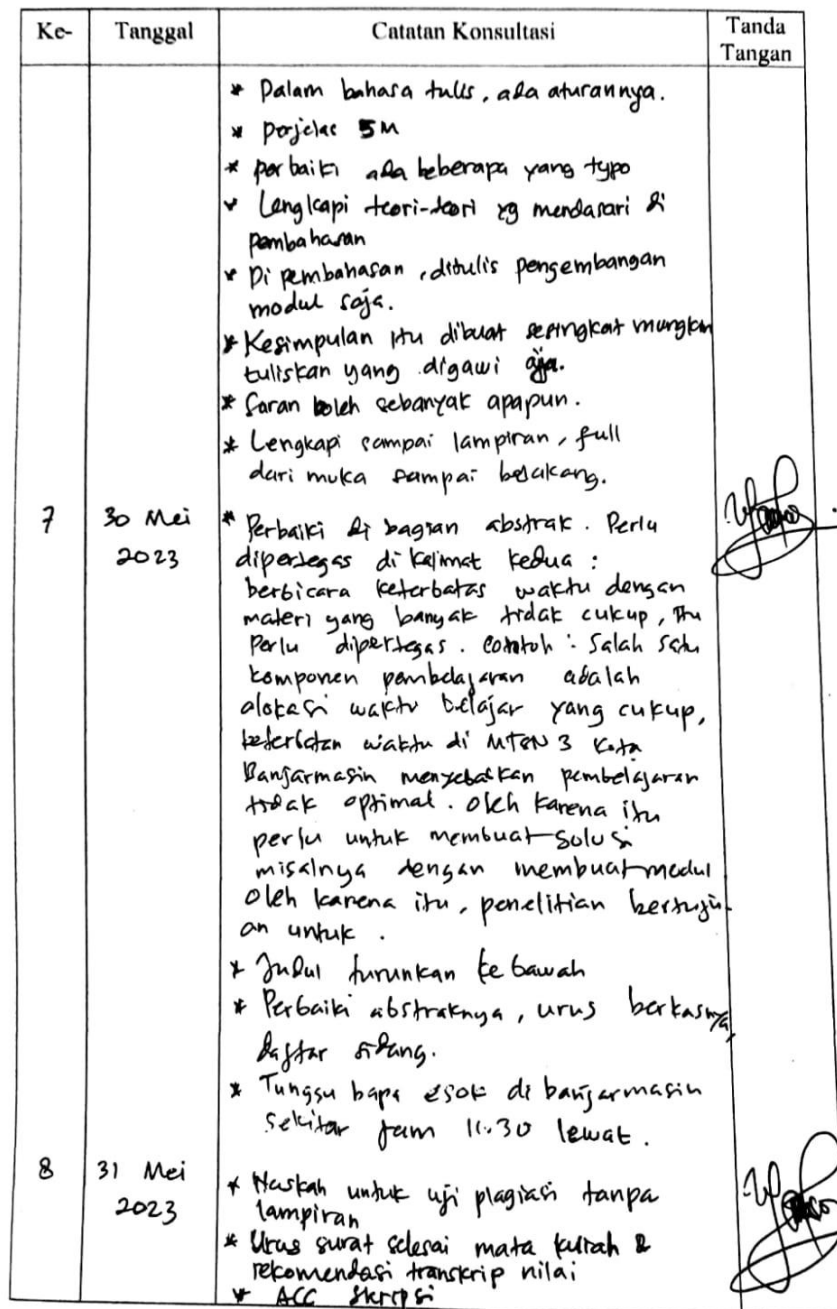 Ke- Tanggal Catatan Konsultasi Tanda Tangan
* Dalam bahasa tulis, ada aturannya.
* perjelas 5M
* perbaiki ada beberapa yang typo
* Lengkapi teori-teori yg mendasari di
pembahasan
* Di pembahasan, ditulis pengembangan
modul saja.
* Kesimpulan itu dibuat sesingkat mungkin
tuliskan yang digawi aja.
* Saran boleh sebanyak apapun.
* Lengkapi sampai lampiran, full
dari muka sampai belakang.
7 30 Mei * Perbaiki di bagian abstrak. Perlu
2023 dipertegas di kalimat kedua :
berbicara keterbatas waktu dengan
materi yang banyak tidak cukup, itu
perlu dipertegas. contoh : Salah satu
komponen pembelajaran adalah
alokasi waktu belajar yang cukup,
waktu di MTSN 3 Kota
Banjarmasin menyebabkan pembelajaran
tidak optimal. Oleh karena itu
perlu untuk membuat solusi
misalnya dengan membuat modul
oleh karena itu, penelitian bertuju-
an untuk .
* Judul turunkan ke bawah
* Perbaiki abstraknya, urus berkasnya,
daftar sidang.
* Tunggu bapa esok di banjarmasin
sekitar jam 11.30 lewat.
8 31 Mei * Naskah untuk uji plagiasi tanpa
2023 lampiran
* Urus surat selesai mata kuliah &
rekomendasi transkrip nilai
* ACC Skripsi